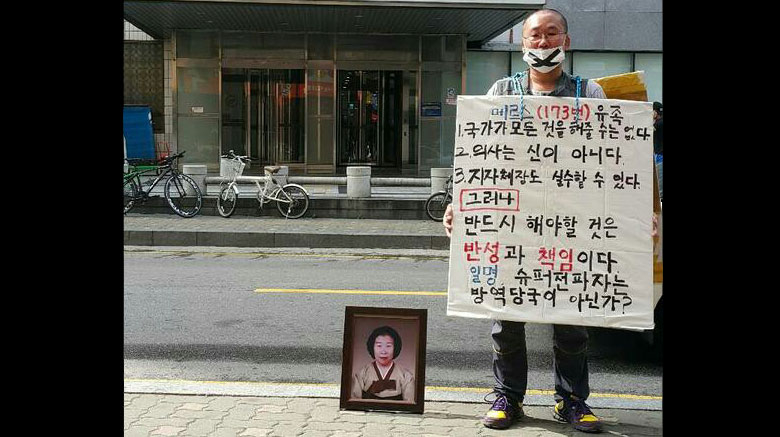 메르스 (173번) 유족
1. 국가가 모든 것을 해줄 수는 없다.
2. 의사는 신이 아니다.
3. 지자체장도 실수할 수 있다.
그러나
반드시 해야할 것은
반성과 책임이다
일명 슈퍼전파자는
방역당국이 아닌가?